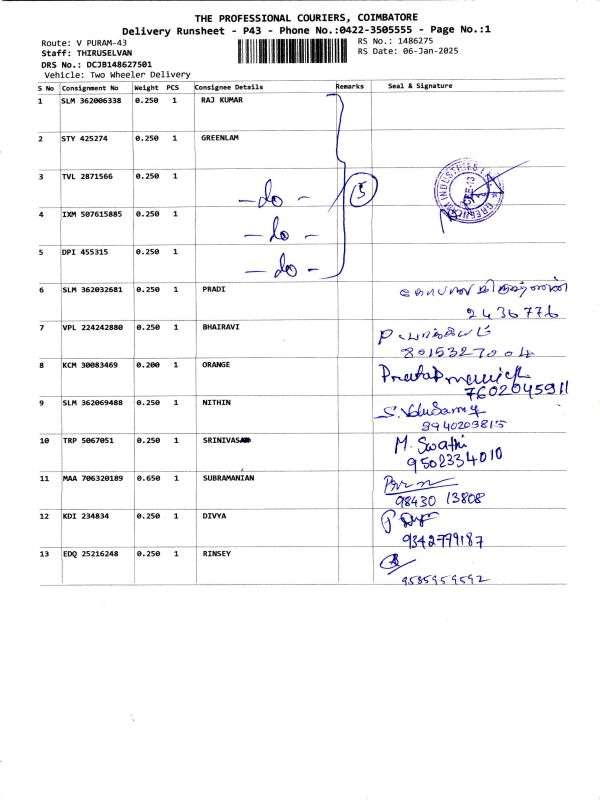 THE PROFESSIONAL COURIERS, COIMBATORE
Delivery Runsheet - P43 - Phone No.:0422-3505555 - Page No.:1
Route: V PURAM-43 RS No.: 1486275
Staff: THIRUSELVAN RS Date: 06-Jan-2025
DRS No.: DCJB148627501
Vehicle: Two Wheeler Delivery
S No Consignment No Weight PCS Consignee Details Remarks Seal & Signature
1 SLM 362006338 0.250 1 RAJ KUMAR
2 STY 425274 0.250 1 GREENLAM
3 TVL 2871566 0.250 1 -do- 5
4 IXM 507615885 0.250 1 -do-
5 DPI 455315 0.250 1 -do-
6 SLM 362032681 0.250 1 PRADI
2436776
7 VPL 224242880 0.250 1 BHAIRAVI
8015327004
8 KCM 30083469 0.200 1 ORANGE
7602045911
9 SLM 362069488 0.250 1 NITHIN S. Velusamy
9940203815
10 TRP 5067051 0.250 1 SRINIVASAN M. Swathi
9502334010
11 MAA 706320189 0.650 1 SUBRAMANIAN
98430 13808
12 KDI 234834 0.250 1 DIVYA
9342779187
13 EDQ 25216248 0.250 1 RINSEY
9535959592